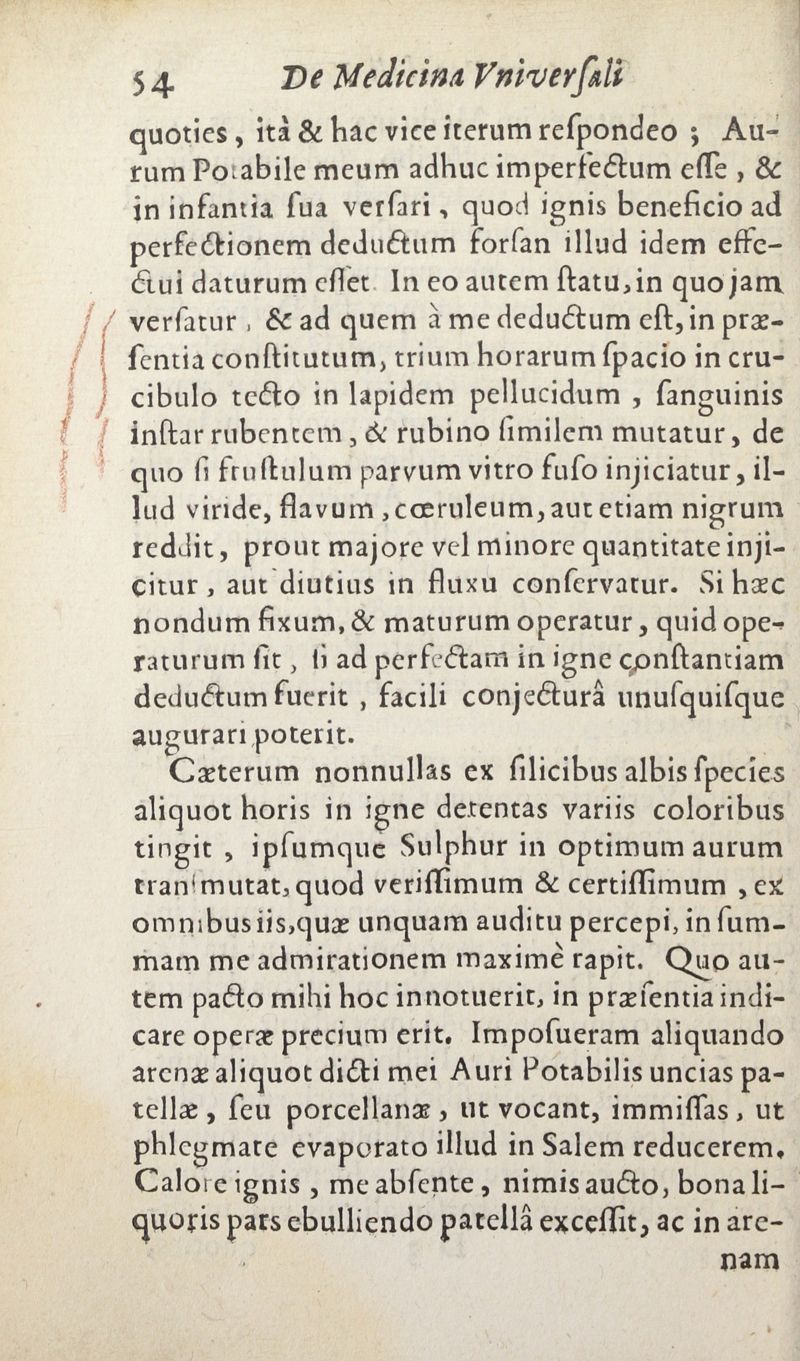 54 De Medicina Vniverſali
quoties, ità & hac vice iterum reſpondeo ; Au-
rum Potabile meum adhuc imperfectum eſſe , &
in infantia ſua verſari, quod ignis beneficio ad
perfectionem deductum forſan illud idem effe-
ctui daturum eſſet. In eo autem ſtatu, in quo jam
verſatur , & ad quem à me deductum eſt, in præ-
ſentia conſtitutum, trium horarum ſpacio in cru-
cibulo tecto in lapidem pellucidum , ſanguinis
inſtar rubentem, & rubino ſimilem mutatur, de
quo ſi fruſtulum parvum vitro fuſo injiciatur, il-
lud viride, flavum, cœruleum, aut etiam nigrum
reddit, prout majore vel minore quantitate inji-
citur, aut diutius in fluxu conſervatur. Si hæc
nondum fixum, & maturum operatur, quid ope-
raturum ſit, ſi ad perfectam in igne conſtantiam
deductum fuerit , facili conjecturâ unuſquiſque
augurari poterit.
Cæterum nonnullas ex ſilicibus albis ſpecies
aliquot horis in igne detentas variis coloribus
tingit , ipſumque Sulphur in optimum aurum
tranſmutat, quod veriſſimum & certiſſimum , ex
omnibus iis, quæ unquam auditu percepi, in ſum-
mam me admirationem maximè rapit. Quo au-
tem pacto mihi hoc innotuerit, in præſentia indi-
care operæ precium erit. Impoſueram aliquando
arenæ aliquot dicti mei Auri Potabilis uncias pa-
tellæ, ſeu porcellanæ, ut vocant, immiſſas, ut
phlegmate evaporato illud in Salem reducerem.
Calore ignis , me abſente, nimis aucto, bona li-
quoris pars ebulliendo patellâ exceſſit, ac in are-
nam